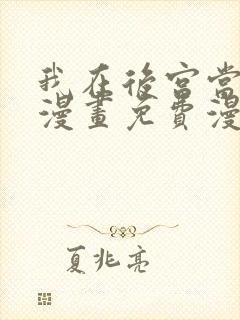 我在後宮當
漫畫免費漫
夏兆亮